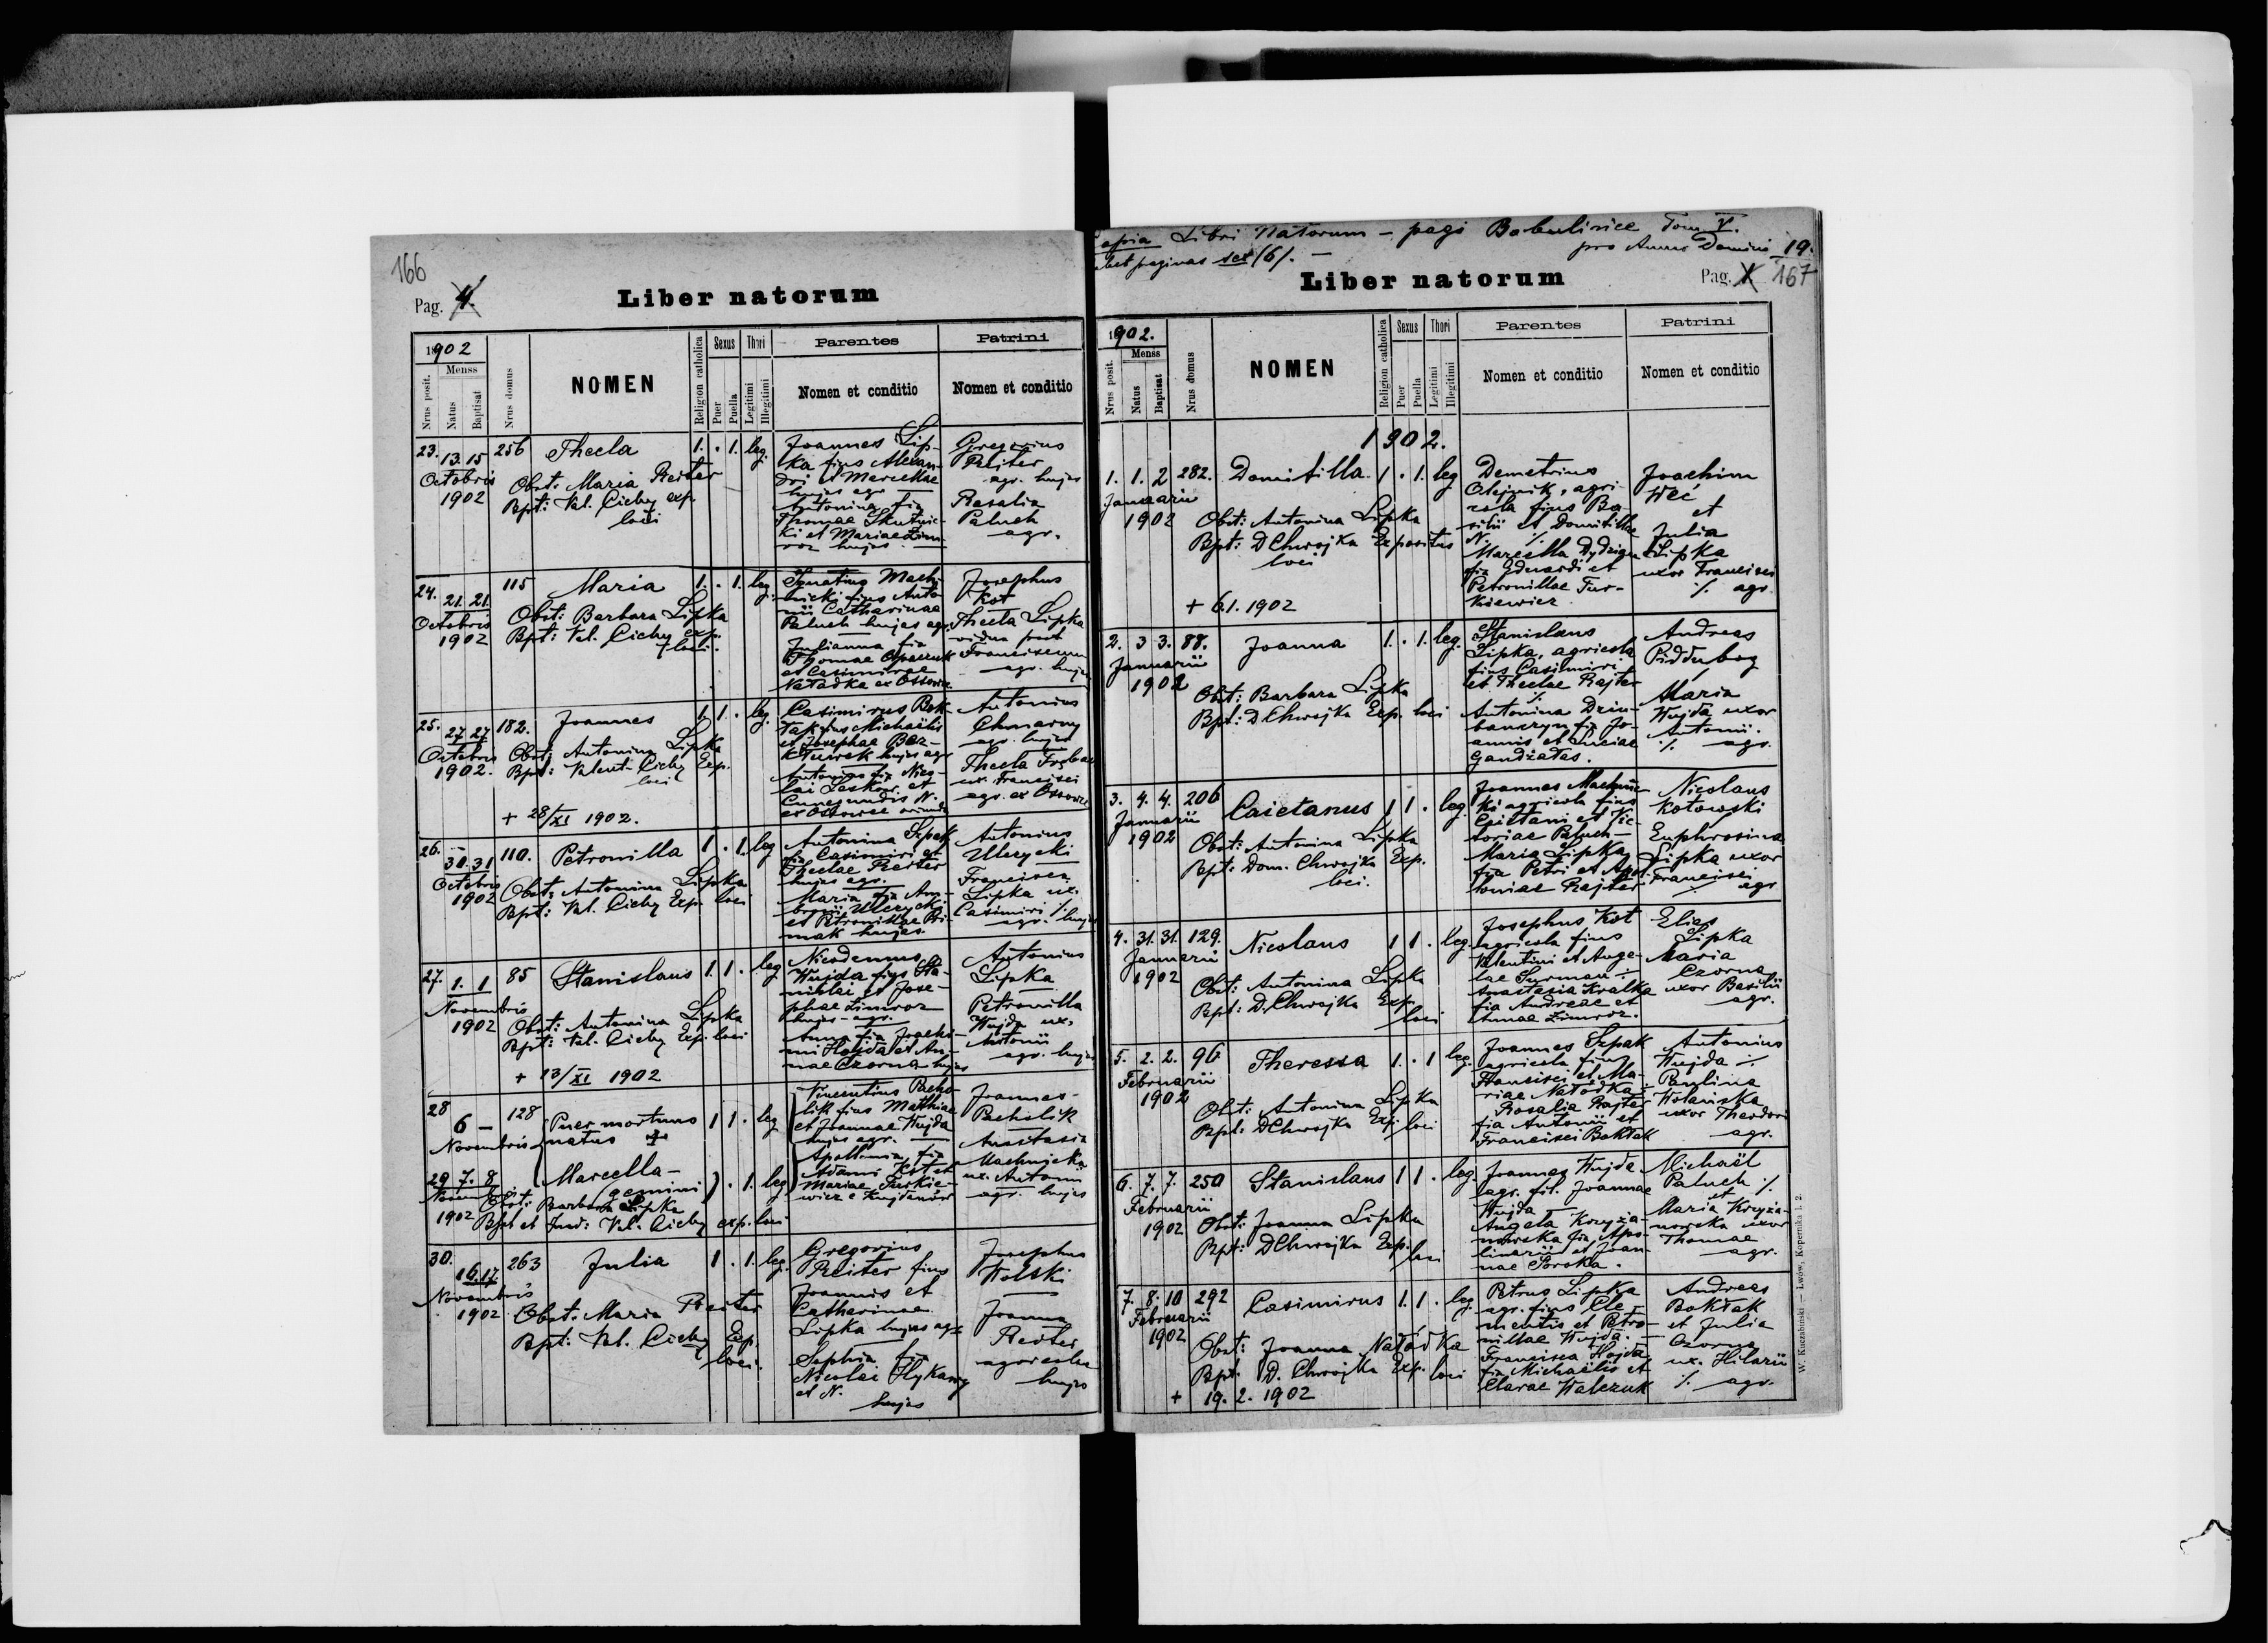 166
Pag. 4.
Liber natorum
1902
Menss
Nrus posit.
Natus
Baptisat
Nrus domus
NOMEN
Religion catholica
Sexus
Puer
Puella
Thori
Legitimi
Illegitimi
Parentes
Nomen et conditio
Patrini
Nomen et conditio
23. 13. 15 256 Thecla 1. . 1. leg.
Octobris
1902
Obst: Maria Reiter
Bpt: Val. Cichy exp.
loci
Joannes Lip-
ka fius Alexan-
dri et Marcellae
hujus agr
Antonina fia
Thomae Skutnic-
ki et Mariae Zim-
roz hujus.
Gregorius
Reiter
agr. hujus
Rosalia
Paluch
agr.
24. 21. 21. 115 Maria 1. . 1. leg.
Octobris
1902
Obst: Barbara Lipka
Bpt: Val. Cichy exp.
loci.
Ignatius Mach-
nicki fius Anto-
nii Catharinae
Paluch hujus agr.
Julianna fia
Thomae
et Casimirae
Naładka ex Ossowce.
Josephus
Kot
Thecla Lipka
vidua post
Franciscum
agr. hujus
25. 27. 27 182. Joannes 1. 1. . leg.
Octobris
1902.
Obst: Antonina Lipka
Bpt: Valent. Cichy Exp.
loci
+ 28/XI 1902.
Casimirus Bok-
łak fius Michaëlis
et Josephae
hujus agr
Antonina fia Nico-
lai et
Cunegundis N.
ex Ossowce
Antonius
Chmarny
agr. hujus
Thecla
ux. Francisci
agr. ex Ossowce
26. 30. 31 110. Petronilla 1. . 1. leg
Octobris
1902
Obst: Antonina Lipka
Bpt: Val. Cichy Exp. loci
Antonius Szpak
fius Casimiri et
Theclae Reiter
hujus agr.
Maria fia Am-
brosii Ulezycki
et Petronillae Pri-
mak hujus.
Antonius
Ulezycki
Francisca
Lipka ux.
Casimiri
agr. hujus
27. 1. 1 85 Stanislaus 1. 1. . leg
Novembris
1902
Obst: Antonina Lipka
Bpt: Val. Cichy Exp. loci
+ 13/XI 1902
Nicodemus
Wujda fius Sta-
nislai et Jose-
phae Zimroz
hujus agr.
Anna fia Joachi-
mi Hojda et An-
nae Czorna hujus
Antonius
Lipka
Petronilla
Wujda ux.
Antonii
agr. hujus
28 6 — 128 Puer mortuus 1 1. leg
Novembris natus
Vincentius Pacho-
lik fius Matthiae
et Joannae Wujda
hujus agr.
Apollonia fia
Adami Kot et
Mariae Turkie-
wicz e Kujdanów
Joannes
Pacholik
Anastasia
Machnicka
ux. Antonii
agr. hujus
29 7. 8 Marcella . 1. leg
gemini
1902
Obst: Barbara Lipka
Bpt et Val. Cichy exp. loci
30. 16. 17. 263 Julia 1 . 1. leg.
Novembris
1902
Obst: Maria Reiter
Bpt: Val. Cichy Exp.
loci.
Gregorius
Reiter fius
Joannis et
Catharinae
Lipka hujus agr
Sophia fia
Nicolai Hykawy
et N.
hujus
Josephus
Wolski
Joanna
Reiter
agricolae
hujus
Copia Libri Natorum — pagi Babulińce Tom V.
pro Anno Domini 19.
habet paginas sex (6). —
Liber natorum
Pag. 1 167
1902.
Menss
Nrus posit.
Natus
Baptisat
Nrus domus
NOMEN
Religion catholica
Sexus
Puer
Puella
Thori
Legitimi
Illegitimi
Parentes
Nomen et conditio
Patrini
Nomen et conditio
1902.
1. 1. 2 282. Domitilla 1 . 1. leg
Januarii
1902
Obst: Antonina Lipka
Bpt: D Chwojka Expositus
loci
+ 6.1. 1902
Demetrius
Olejnik, agri-
cola fius Ba-
silii et Domitillae
N.
Marcella Dydziga
fia Eduardi et
Petronillae Tur-
kiewicz
Joachim
Weć
et
Julia
Lipka
uxor Francisci
agr
2. 3 3. 88. Joanna 1. . 1. leg.
Januarii
1902
Obst: Barbara Lipka
Bpt: D Chwojka Exp. loci
Stanislaus
Lipka, agricola
fius Casimiri
et Theclae Rajter
Antonina Dziu-
banczym fia Jo-
annis et Luciae
Gandziatas.
Andreas
Piddubog
Maria
Wujda uxor
Antonii.
agr.
3. 4. 4. 206 Caietanus 1 1. . leg.
Januarii
1902
Obst: Antonina Lipka
Bpt: Dom. Chwojka Exp.
loci.
Joannes Machnic-
ki agricola fius
Caietani et Vic-
toriae Paluch
Maria Lipka
fia Petri et Apol-
loniae Rajter
Nicolaus
Kotowski
Euphrosina
Lipka uxor
Francisci
agr
4. 31. 31. 129. Nicolaus 1 1. . leg.
Januarii
1902
Obst: Antonina Lipka
Bpt: D. Chwojka Exp.
loci
Josephus Kot
agricola fius
Valentini et Ange-
lae Surman
Anastasia Kralka
fia Andreae et
Annae Zimroz.
Elias
Lipka
Maria
Czorna
uxor Basilii
agr.
5. 2. 2. 96 Theressa 1. . 1 leg.
Februarii
1902
Obst: Antonina Lipka
Bpt: D Chwojka Exp. loci
Joannes Szpak
agricola fius
Francisci et Ma-
riae Natodka
Rosalia Rajter
fia Antonii et
Francisci Boktak
Antonius
Wujda
Paulina
Wolańska
uxor Theodori
agr.
6. 7. 7. 250 Stanislaus 1 1. . leg.
Februarii
1902
Obst: Joanna Lipka
Bpt: D Chwojka Exp.
loci
Joannes Wujda
agr. fil. Joannae
Wujda
Angela Krzyża-
nowska fia Apo-
linarii et Joan-
nae Sorska.
Michaël
Paluch
et
Maria Krzyża-
nowska uxor
Thomae
agr.
7. 8. 10 292 Casimirus 1. 1. . leg
Februarii
1902
Obst: Joanna Natódka
Bpt. D. Chwojka Exp. loci
+ 19. 2. 1902
Petrus Lipka
agr. fius Cle-
mentis et Petro-
nillae Wujda.
Francisca Hojda
fia Michaëlis et
Clarae Walczuk
Andreas
Boktak
et Julia
Czorna
ux. Hilarii
agr.
W. Kuczabiński — Lwów, Kopernika l. 2.